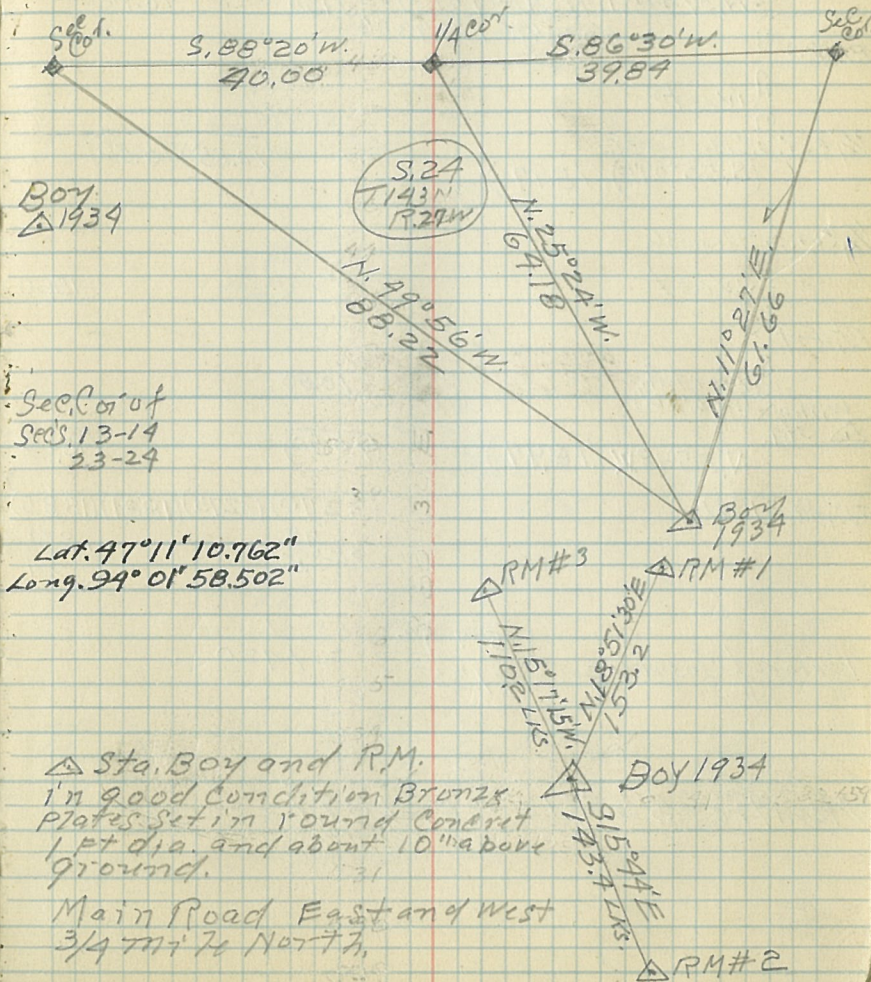 Sec. Cor.
S. 88°20' W.
40.00
1/4 Cor.
S. 86°30' W.
39.84
Sec. Cor.
S. 24
T 143 N
R. 27 W
Boy
1934
N. 49°56' W.
88.22
N. 25°24' W.
64.18
N. 11°27' E.
61.66
Sec. Cor of
Secs. 13-14
23-24
Boy
1934
Lat. 47°11'10.762"
Long. 94°01'58.502"
RM #3
RM #1
N. 15°17'15" W.
1.102 LKS
N. 18°51'30" E
153.2
Boy 1934
S 15°44' E
143.4 LKS.
RM # 2
Sta. Boy and R.M.
in good condition Bronze
Plates set in round Concret
1 Ft dia. and about 10" above
ground.
Main Road East and West
3/4 mile North.